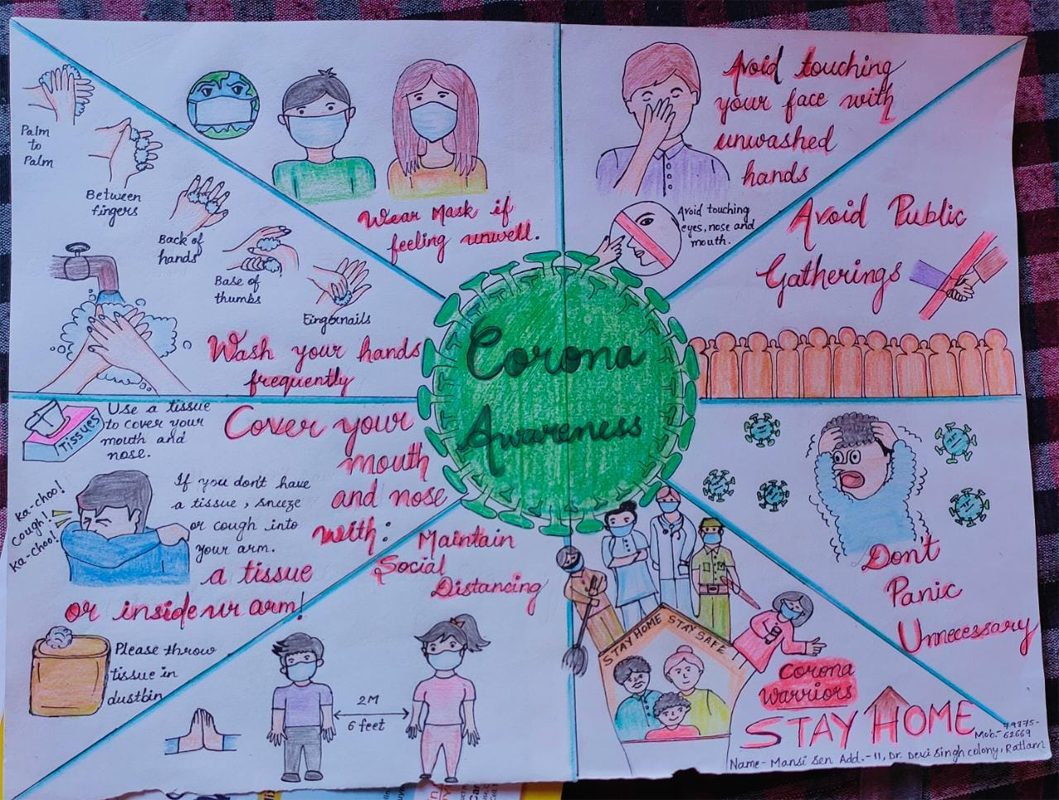 Corona
Awareness
Palm
to
Palm
Between
fingers
Back of
hands
Base of
thumbs
Fingernails
Wash your hands
frequently
Wear Mask if
feeling unwell.
Avoid touching
your face with
unwashed
hands
Avoid touching
eyes, nose and
mouth.
Avoid Public
Gatherings
Tissues
Use a tissue
to cover your
mouth and
nose.
Cover your
mouth
and nose
with:
a tissue
or inside ur arm!
ka-choo!
cough!
ka-choo!
If you don't have
a tissue, sneeze
or cough into
your arm.
Please throw
tissue in
dustbin
Maintain
Social
Distancing
2M
6 feet
STAY HOME STAY SAFE
Corona
Warriors
STAY HOME
Don't
Panic
Unnecessary
Mob:- 79775-
62669
Name- Mansi Sen Add.-11, Dr. Devi Singh colony, Ratlam